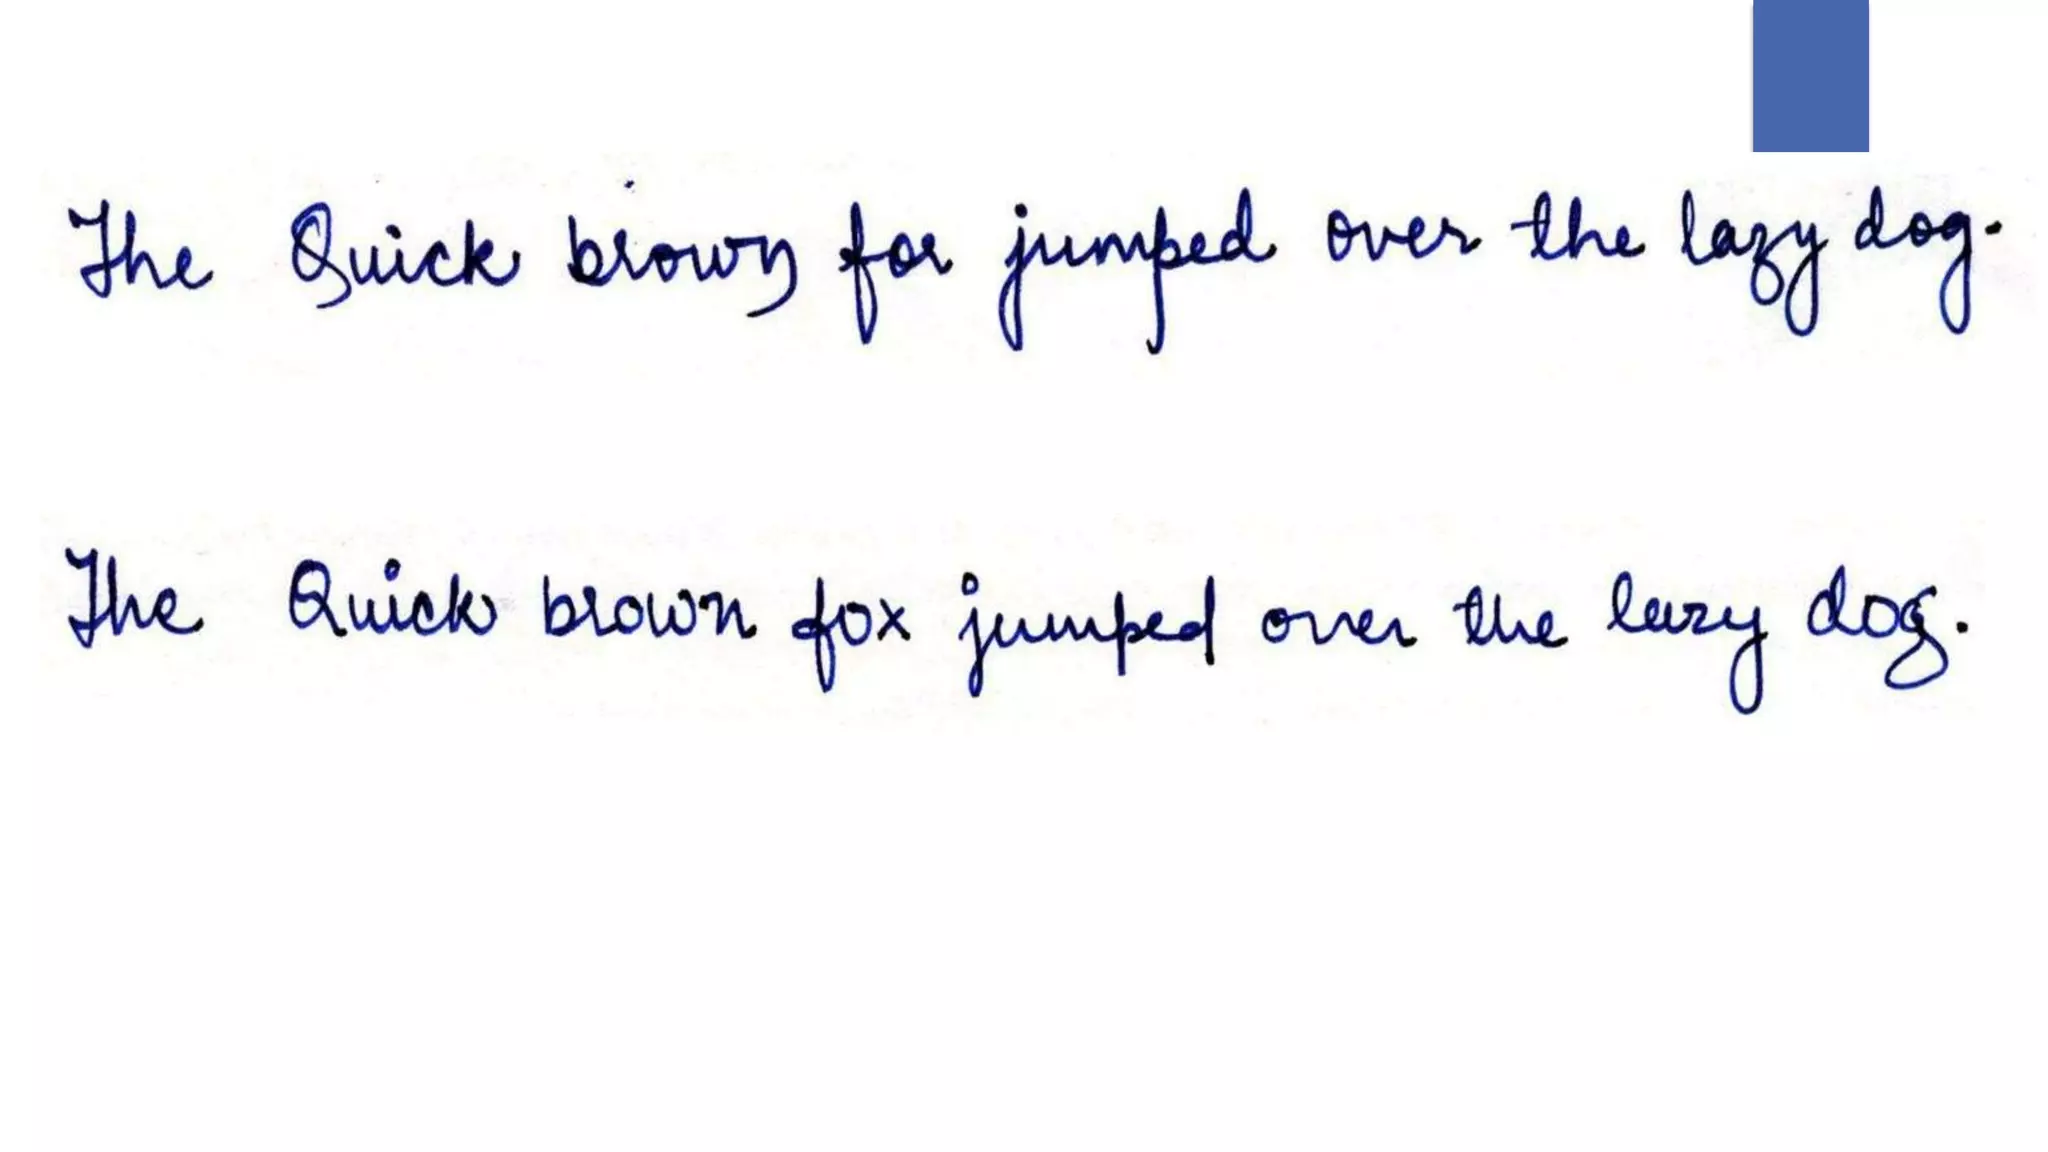 The Quick brown fox jumped over the lazy dog.
The Quick brown fox jumped over the lazy dog.